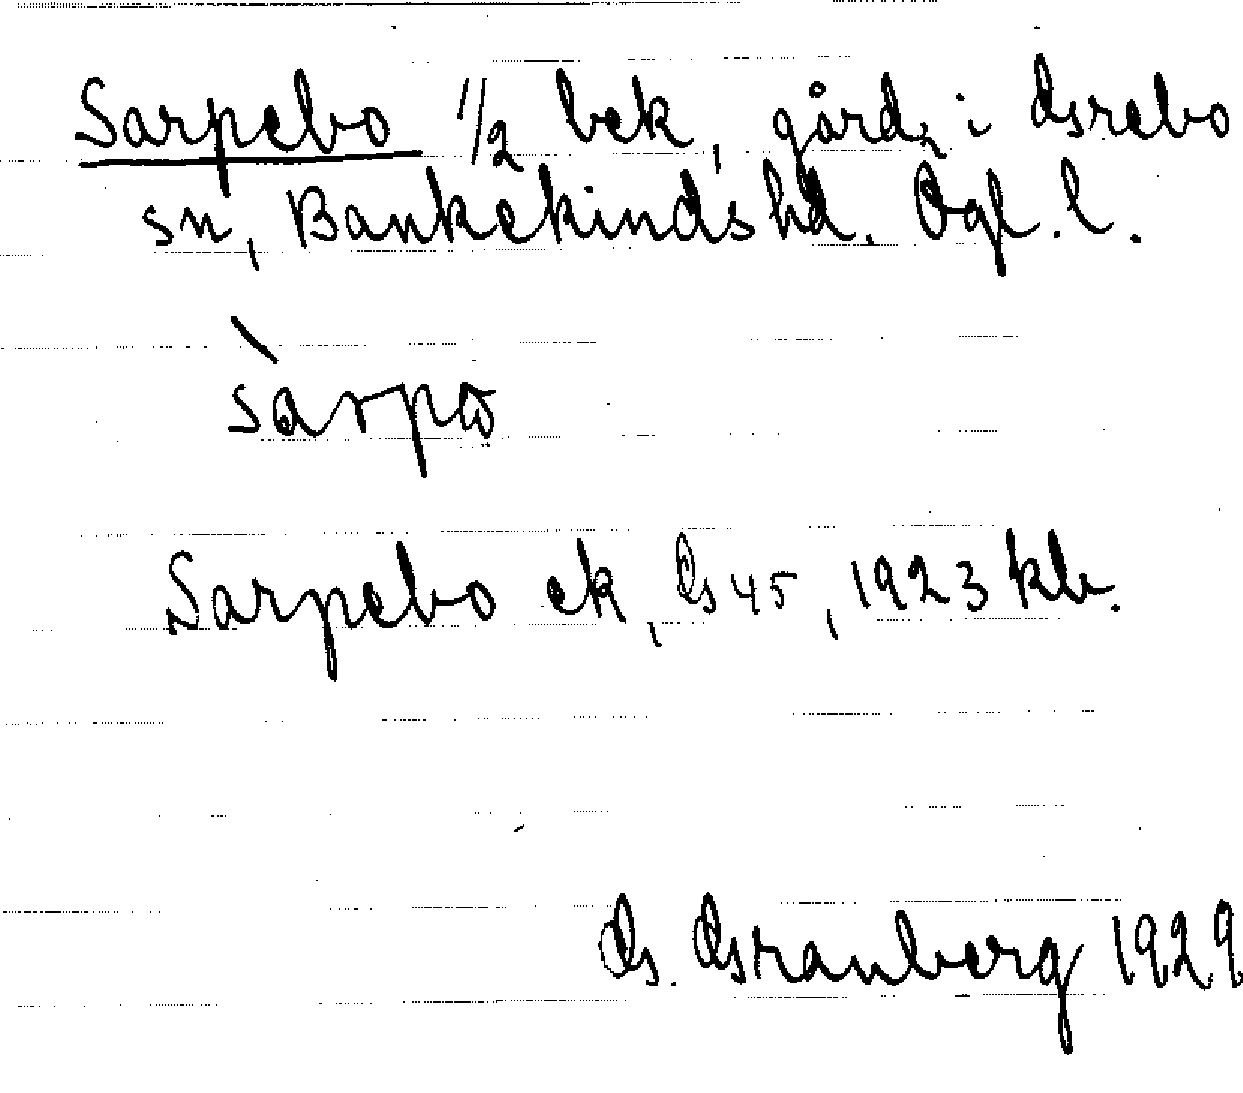 Sarpebo 1/2 bek, gård, i Grebo
sn, Bankekinds hd. Ögl. l.
sàrpo
Sarpebo ek, GS 45, 1923 kb.
G. Granberg 1929